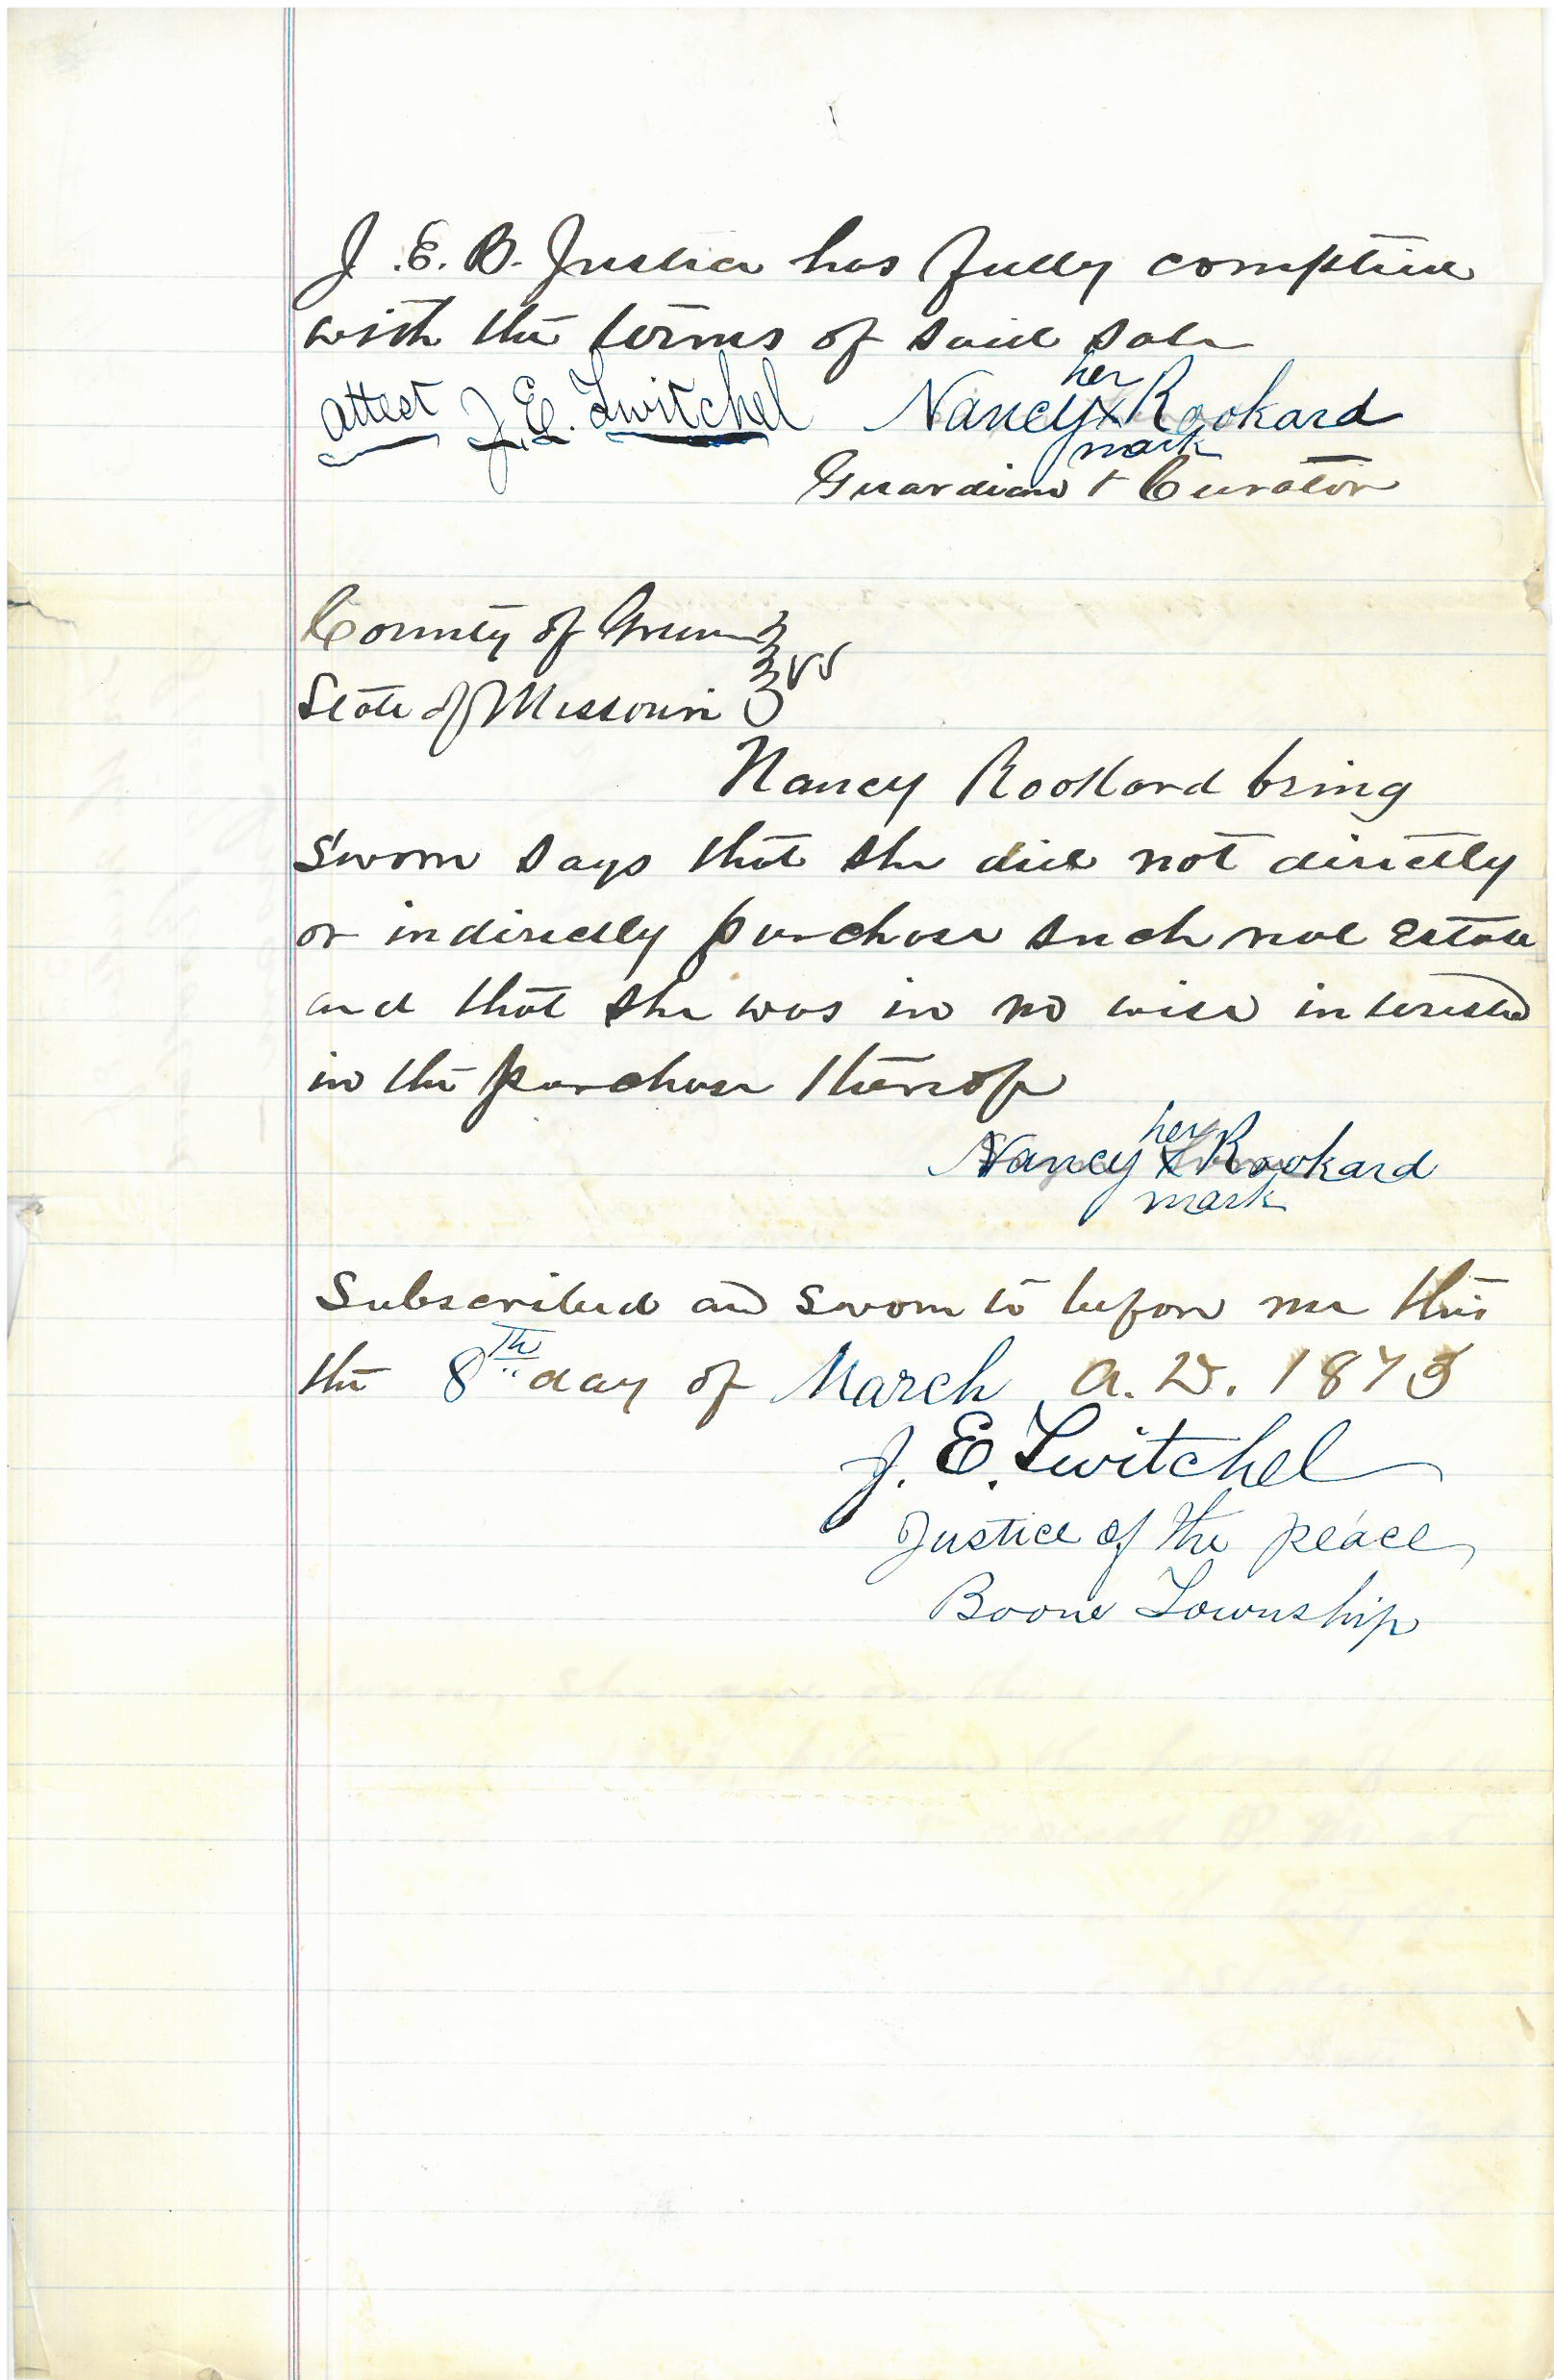 J. E. B. Justice has fully complied
with the terms of said sale
attest J. E. Twitchel Nancy her X mark Rookard
Guardian & Curator
County of Greene }
} ss
State of Missouri }
Nancy Rookard being
sworn says that she did not directly
or indirectly purchase such real Estate
and that she was in no wise interested
in the purchase thereof
Nancy her X mark Rookard
Subscribed and sworn to before me this
the 8th day of March A.D. 1875
J. E. Twitchel
Justice of the peace
Boone Township